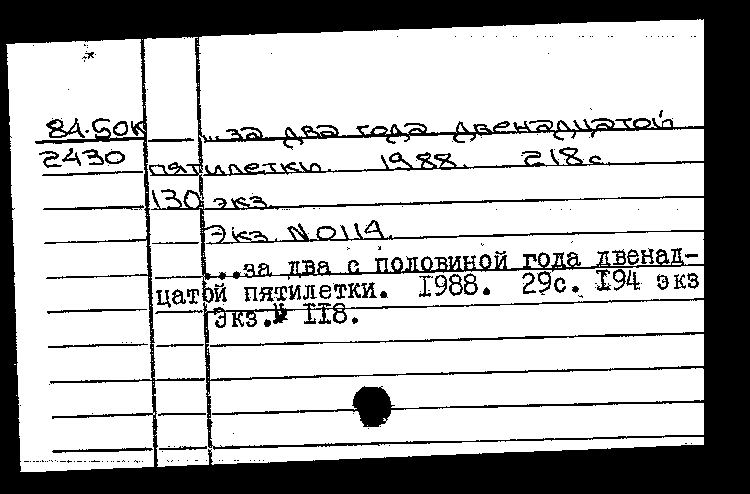 84-50к ...за два года двенадцатой
2430 пятилетки. 1988. 218с.
130 экз.
Экз. N 0114.
...за два с половиной года двенад-
цатой пятилетки. 1988. 29с. 194 экз
Экз.№ 118.